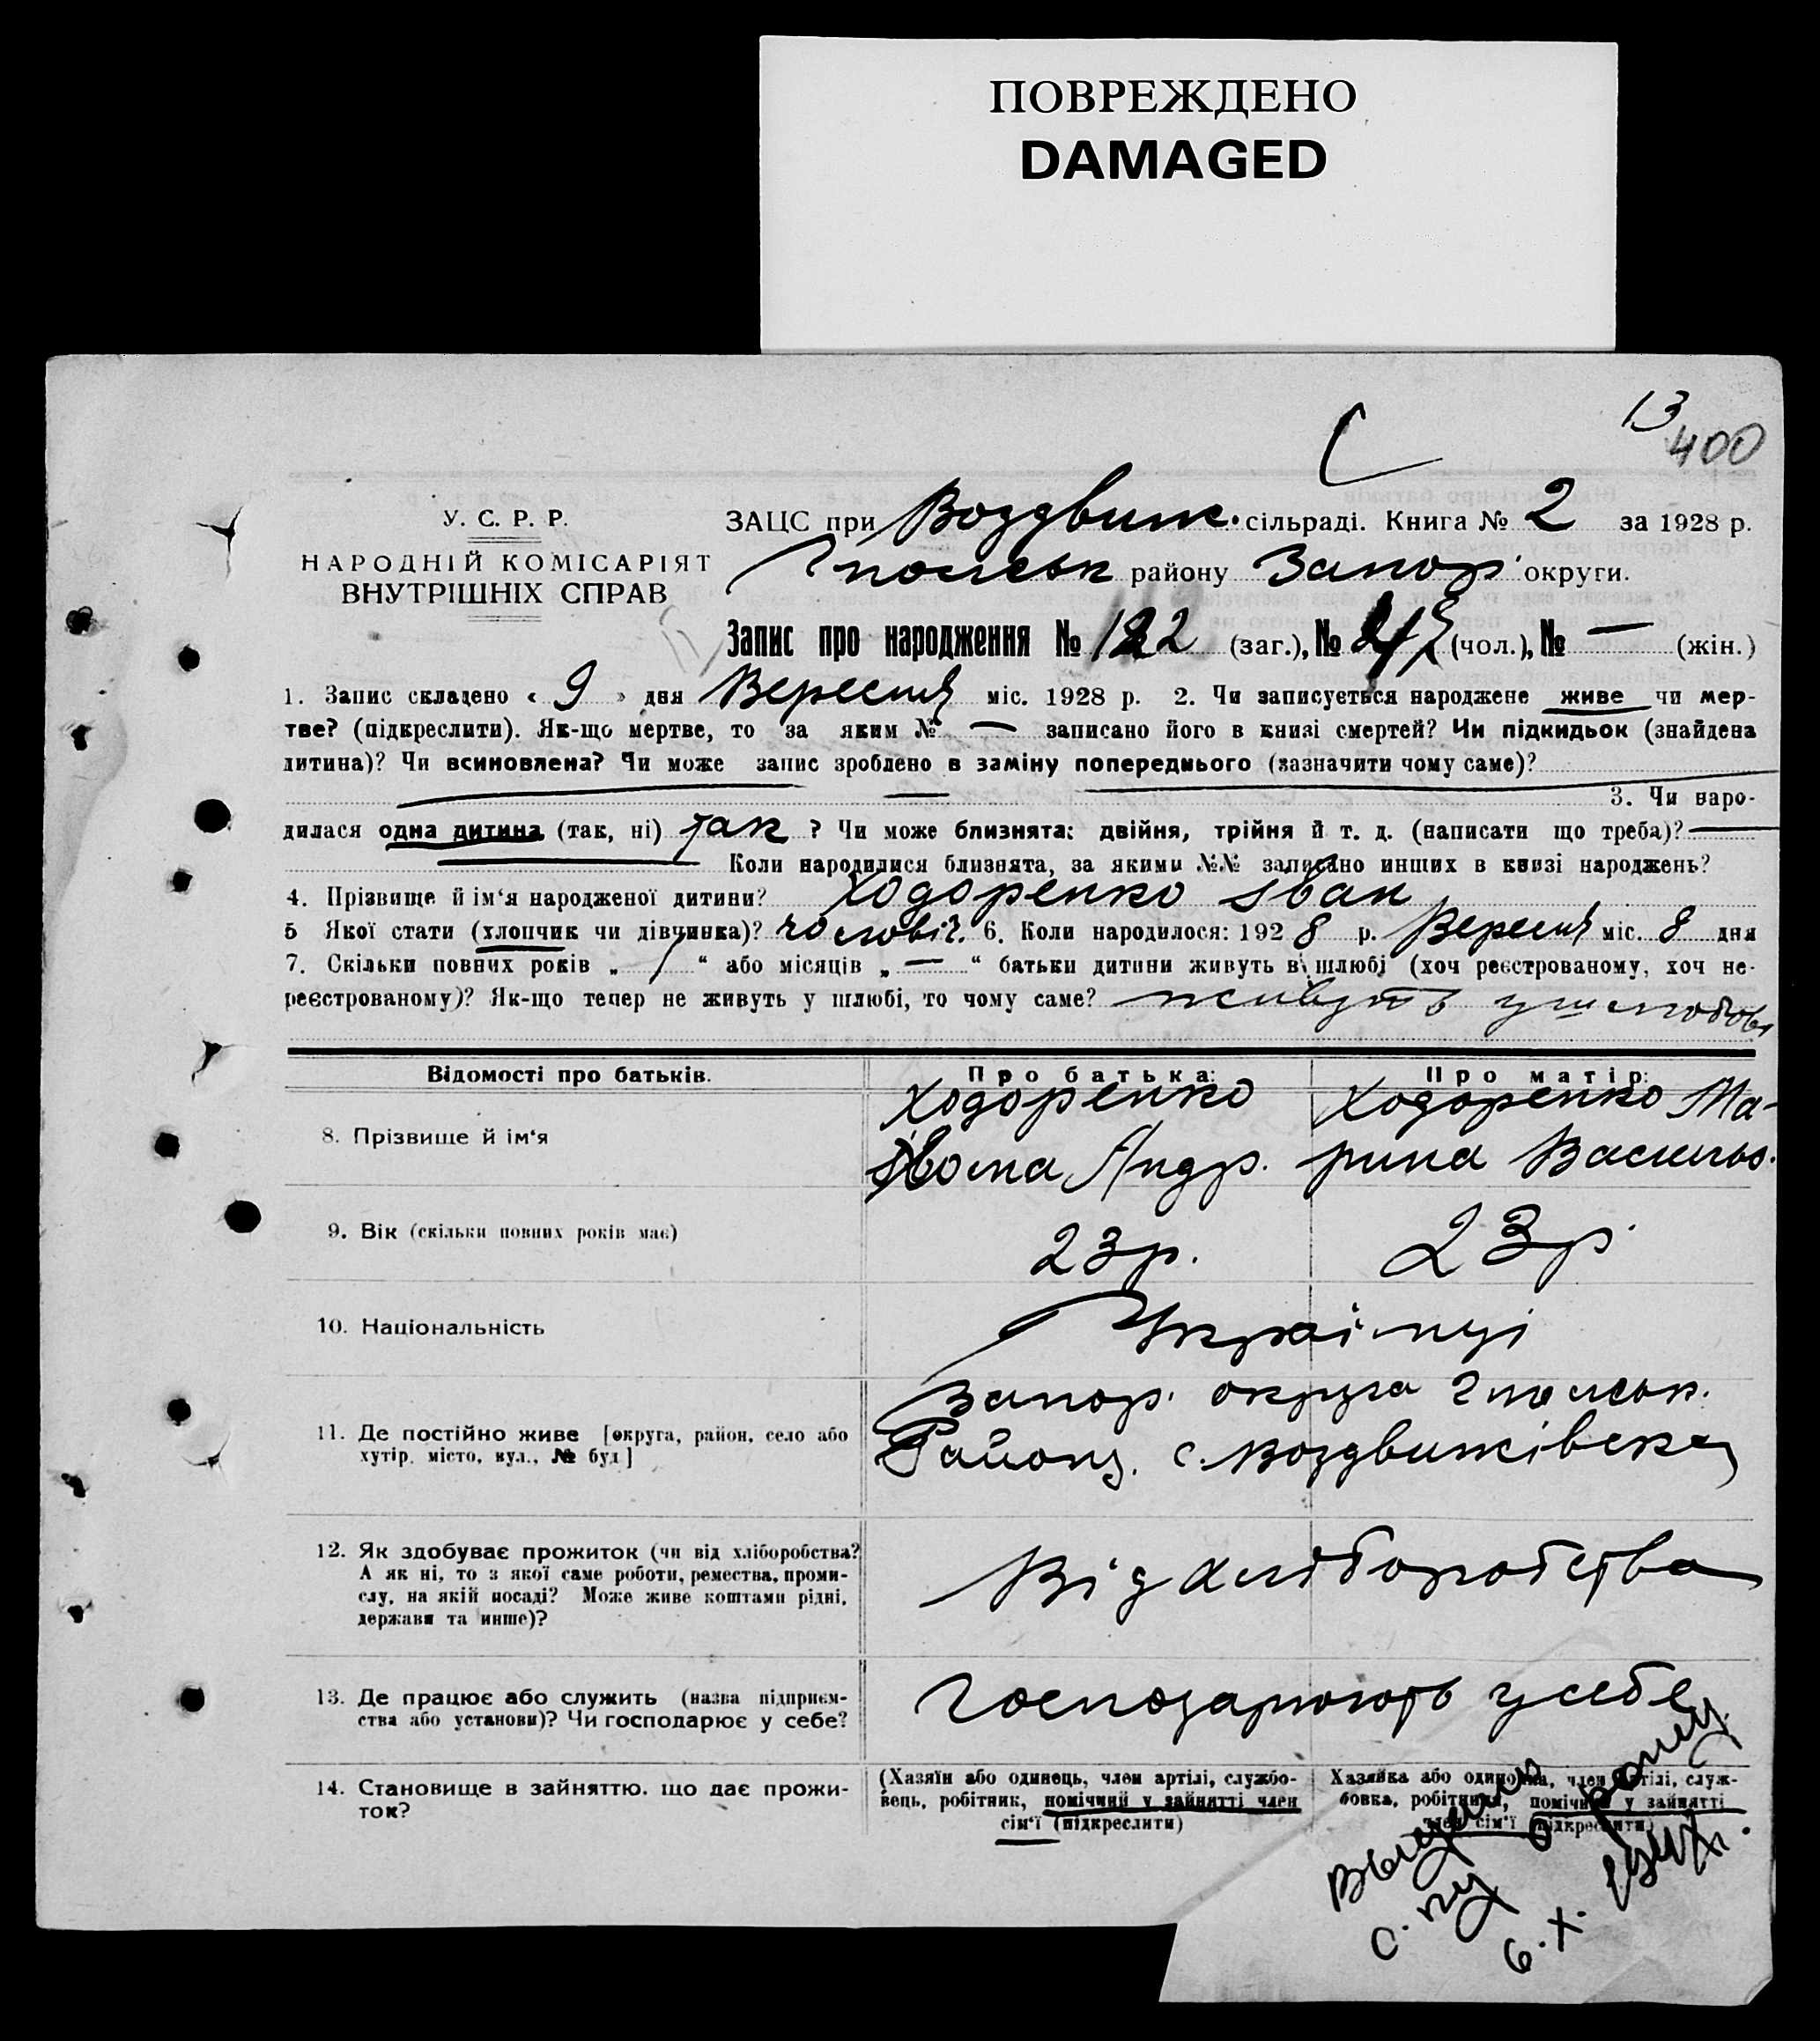 ПОВРЕЖДЕНО
DAMAGED
13
400
У. С. Р. Р.
НАРОДНІЙ КОМІСАРІЯТ
ВНУТРІШНІХ СПРАВ
ЗАЦС при Воздвиж. сільраді. Книга № 2 за 1928 р.
Гпольськ району Запор. округи.
Запис про народження № (заг.), № (чол.), № — (жін.)
1. Запис складено « 9 » дня Вересня міс. 1928 р. 2. Чи записується народжене живе чи мер-
тве? (підкреслити). Як-що мертве, то за яким № — записано його в книзі смертей? Чи підкидьок (знайдена
дитина)? Чи всиновлена? Чи може запис зроблено в заміну попереднього (зазначити чому саме)?
— 3. Чи наро-
дилася одна дитина (так, ні) так ? Чи може близнята: двійня, трійня й т. д. (написати що треба)? —
Коли народилися близнята, за якими №№ записано инших в книзі народжень?
4. Прізвище й ім‘я народженої дитини? Ходоренко Іван
5 Якої стати (хлопчик чи дівчинка)? чоловіч. 6. Коли народилося: 1928 р. Вересня міс. 8 дня
7. Скільки повних років „ 1 “ або місяців „ — “ батьки дитини живуть в шлюбі (хоч реєстрованому, хоч не-
реєстрованому)? Як-що тепер не живуть у шлюбі, то чому саме? живуть у шлюбові
Відомості про батьків. Про батька: Про матір:
8. Прізвище й ім‘я
Ходоренко Ходоренко Ма-
Хома Андр. рина Васильо.
9. Вік (скільки повних років має) 23 р. 23 р.
10. Національність Українці
11. Де постійно живе [округа, район, село або
хутір, місто, вул., № буд]
Запор. округа Гпольськ.
Району. с. Воздвижівська
12. Як здобуває прожиток (чи від хліборобства?
А як ні, то з якої саме роботи, ремества, проми-
слу, на якій посаді? Може живе коштами рідні,
держави та инше)?
Від хліборобства
13. Де працює або служить (назва підприєм-
ства або установи)? Чи господарює у себе?
Господарюють у себе
14. Становище в зайняттю, що дає прожи-
ток?
(Хазяїн або одинець, член артілі, службо-
вець, робітник, помічний у зайнятті член
сім‘ї (підкреслити)
Хазяйка або одиночка, член артілі, служ-
бовка, робітниця, помічна у зайнятті
член сім‘ї підкреслити)
6. X.